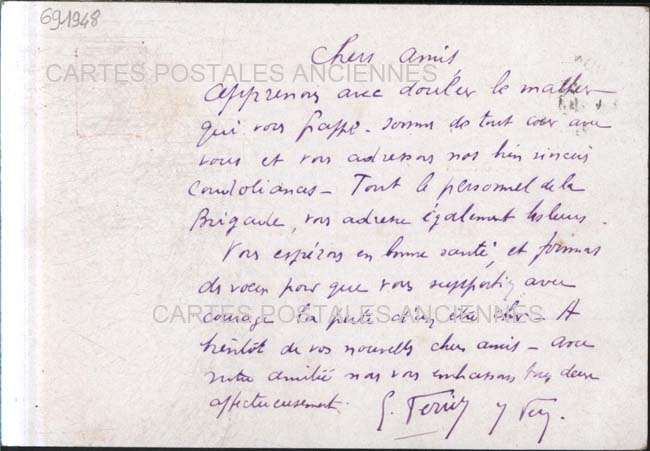 691948
Chers amis
CARTES POSTALES ANCIENNES
Apprenons avec douleur le malheur
qui vous frappe - sommes de tout coeur avec
vous et vous adressons nos bien sincères
condoléances - Tout le personnel de la
Brigade, vous adresse également les leurs.
Vous espérons en bonne santé, et formons
des voeux pour que vous supportiez avec
courage la perte d'un être cher - A
CARTES POSTALES ANCIENNES
bientôt de vos nouvelles chers amis - avec
notre amitié nous vous embrassons tous deux
affectueusement.